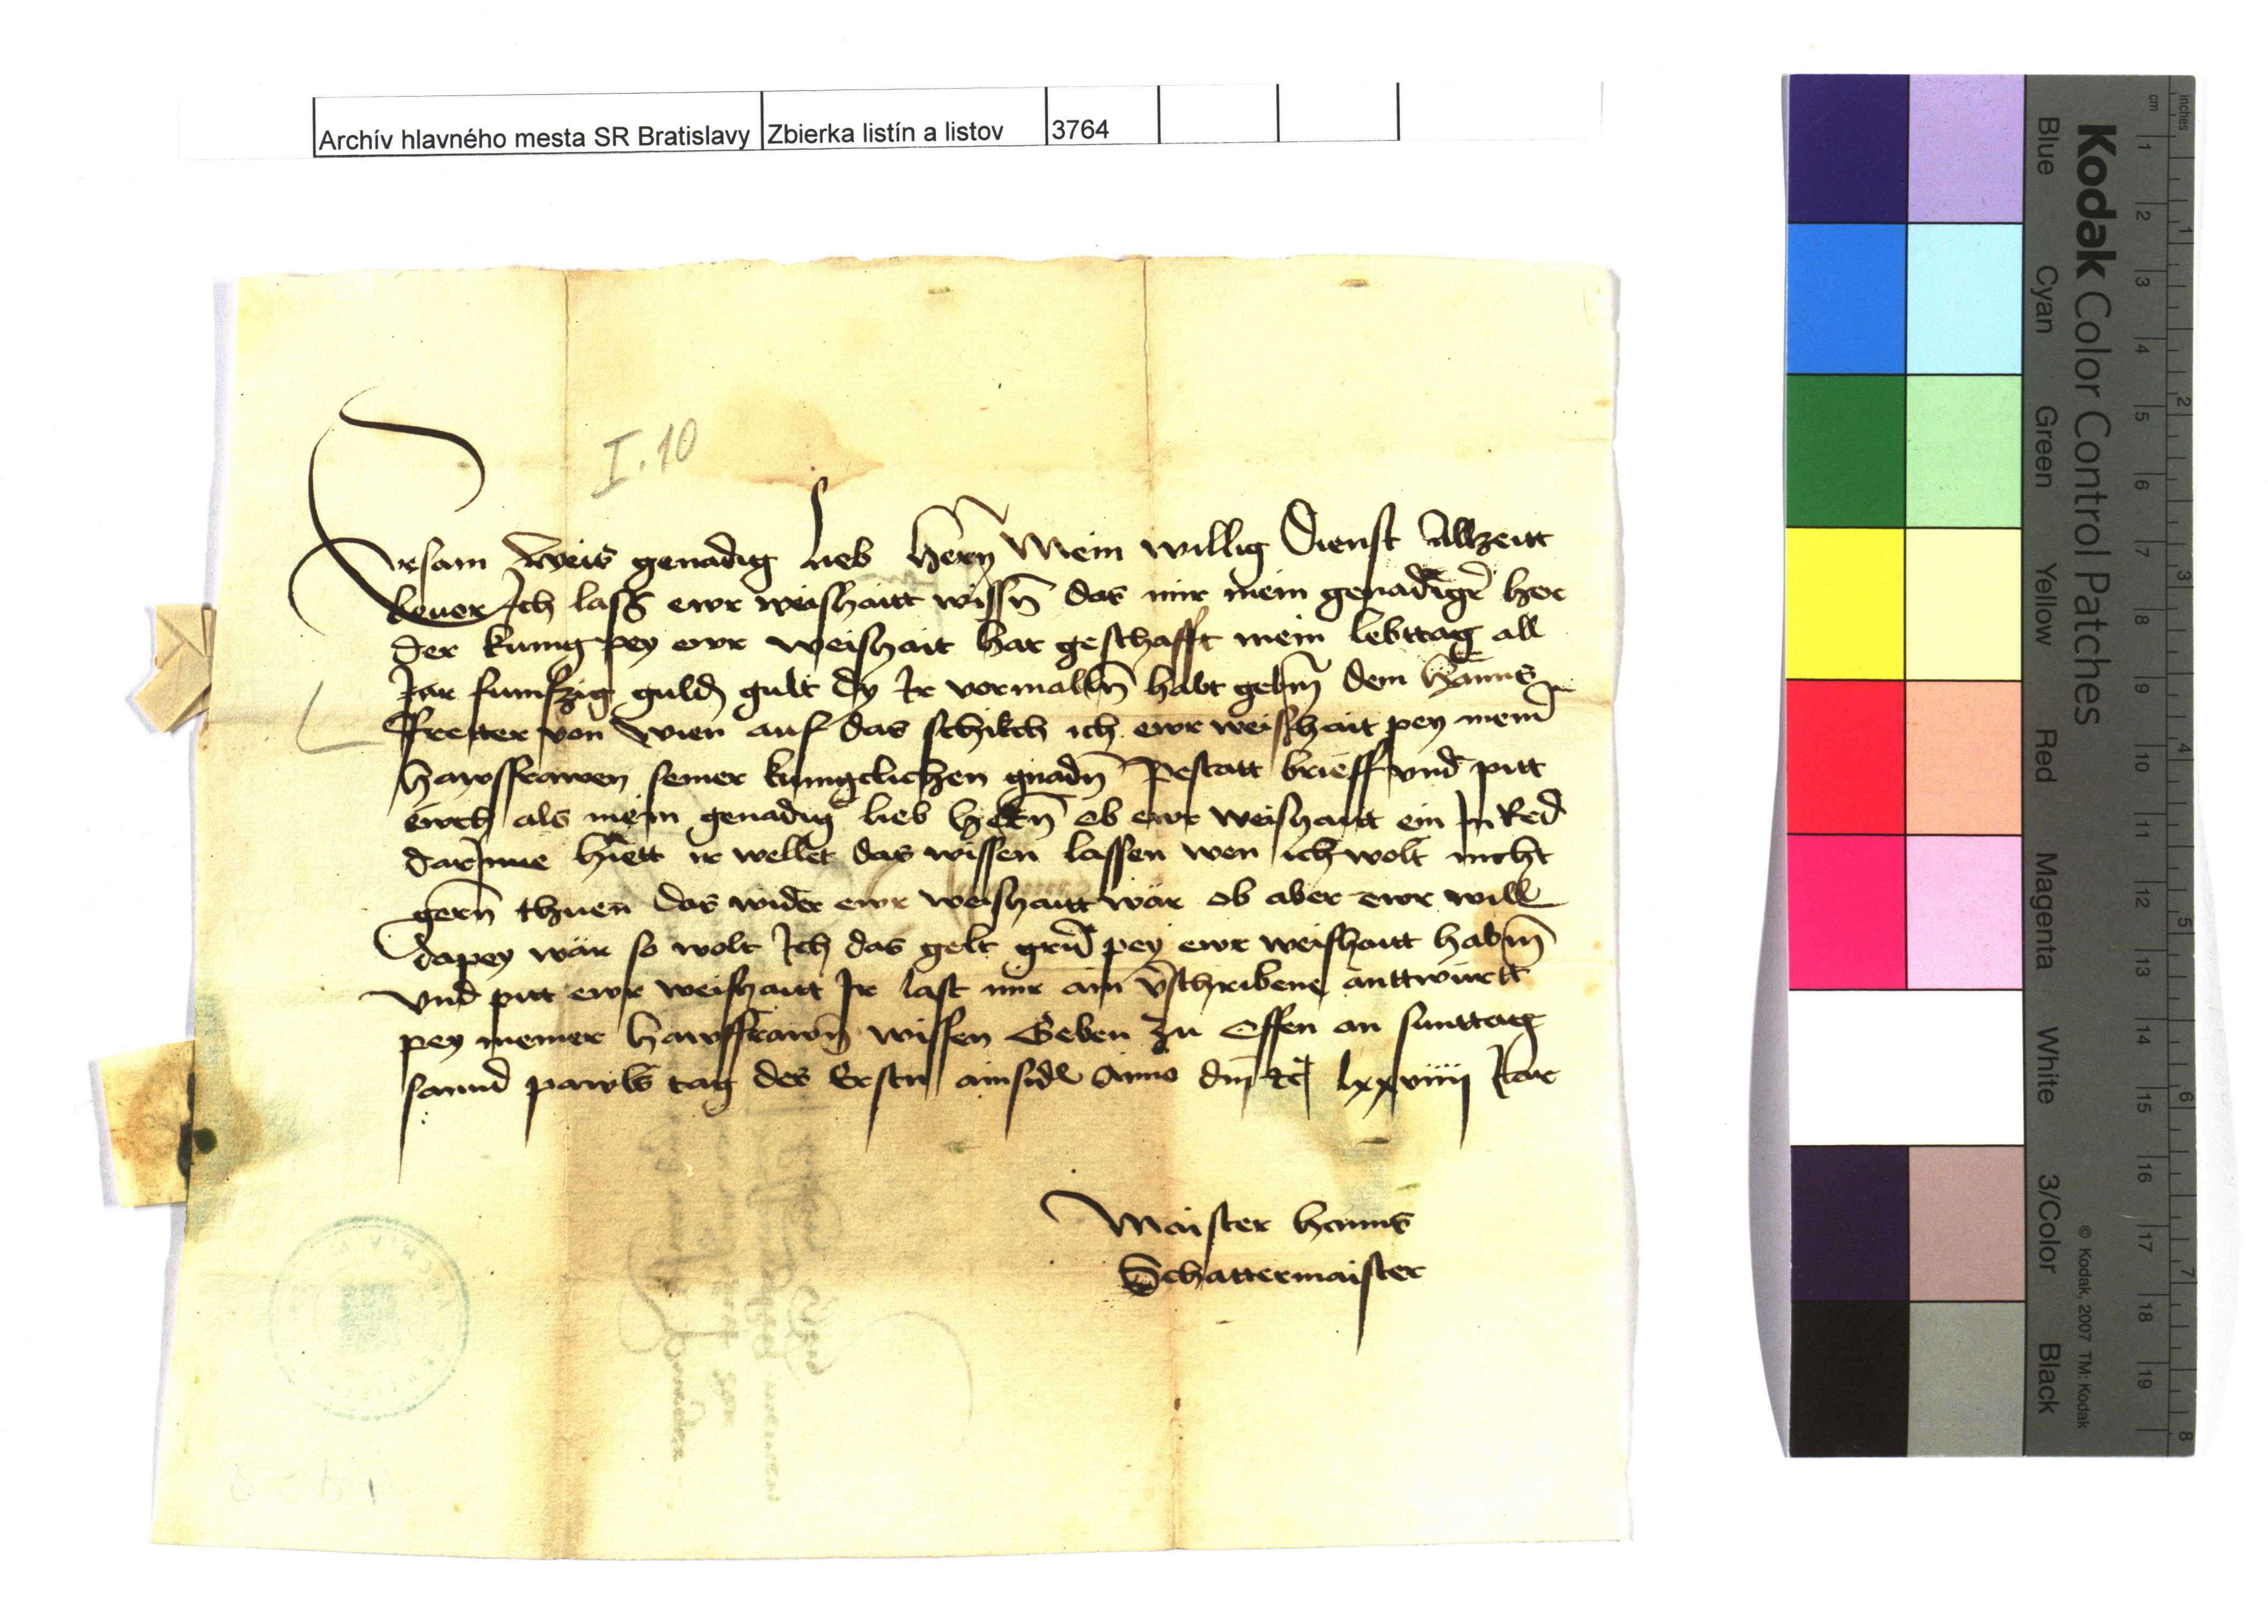 Archív hlavného mesta SR Bratislavy Zbierka listín a listov 3764
I.10
Ersam Weis genadig lieb herrn Mein willig Dienst Allzeitt
beuor Ich lass ewr weishaitt wissn̄ das mir mein genadigr̄ her
der kunig pey ewr weishait hat geschafft mein lebttag all
Jar fumfzig guldn̄ gult dy Ir vormalln̄ habt gebm̄ dem Hanns
von Wien auf das schikch ich ewr weishait pey meinr̄
hawsfrawen seiner kunigclichen gnadn̄ Pestatt brieff vnd pitt
ewch als mein genadig lieb herrn̄ ob ewr weishaitt ein In Red
darJnne hiett ir wellet das wissen lassen wen ich wolt nicht
gern̄ thuen das wider ewr weishaitt wär ob aber ewr will
dapey wär so wolt Ich das gelt pey ewr weishaitt habm̄
vnd pitt ewr weishaitt Ir last mir ain v̄schribene anttwurtt
pey meiner hawsfrawn̄ wissen Geben zu Offen an sunttag
sannd pawls tag des Erstn̄ ainsidl Anno dm̄ etc lxxviiii Jar
Maister hanns
Schattermaister
Kodak Color Control Patches
Blue Cyan Green Yellow Red Magenta White 3/Color Black
© Kodak, 2007 TM: Kodak
inches 1 2 3 4 5 6 7 8
cm 1 2 3 4 5 6 7 8 9 10 11 12 13 14 15 16 17 18 19